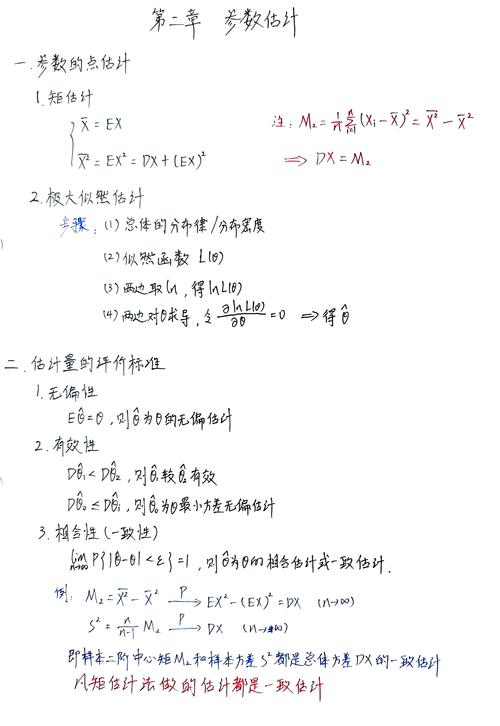 第二章 参数估计
一.参数的点估计
1.矩估计
X̄ = EX 注: M₂ = 1/n Σⁿᵢ₌₁ (Xᵢ - X̄)² = \overline{X²} - X̄²
\overline{X²} = EX² = DX + (EX)² ⇒ DX = M₂
2.极大似然估计
步骤: (1) 总体的分布律/分布密度
(2) 似然函数 L(θ)
(3) 两边取ln, 得lnL(θ)
(4) 两边对θ求导, 令 ∂lnL(θ)/∂θ = 0 ⇒ 得θ̂
二.估计量的评价标准
1.无偏性
Eθ̂ = θ, 则θ̂为θ的无偏估计
2.有效性
Dθ̂₁ < Dθ̂₂, 则θ̂₁较θ̂₂有效
Dθ̂₀ ≤ Dθ̂ᵢ, 则θ̂₀为θ最小方差无偏估计
3.相合性(一致性)
lim n→∞ P{|θ̂-θ| < ε} = 1, 则θ̂为θ的相合估计或一致估计.
例: M₂ = \overline{X²} - X̄² —P→ EX² - (EX)² = DX (n→∞)
S² = n/(n-1) M₂ —P→ DX (n→∞)
即样本二阶中心矩M₂和样本方差S²都是总体方差DX的一致估计
凡矩估计法做的估计都是一致估计